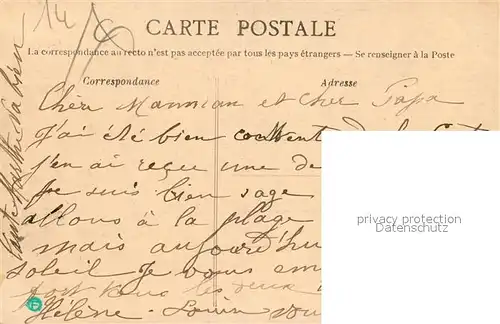 14
CARTE POSTALE
La correspondance au recto n'est pas acceptée par tous les pays étrangers — Se renseigner à la Poste
Correspondance
Adresse
Cher Manman et cher Papa
J'ai été bien
j'en ai reçu une de
je suis bien sage
allons à la plage
mais aujourd'hu
soleil je vous em
fort tous les deux
Hélène - Louis vou
Tante Marthe va bien
privacy protection
Datenschutz